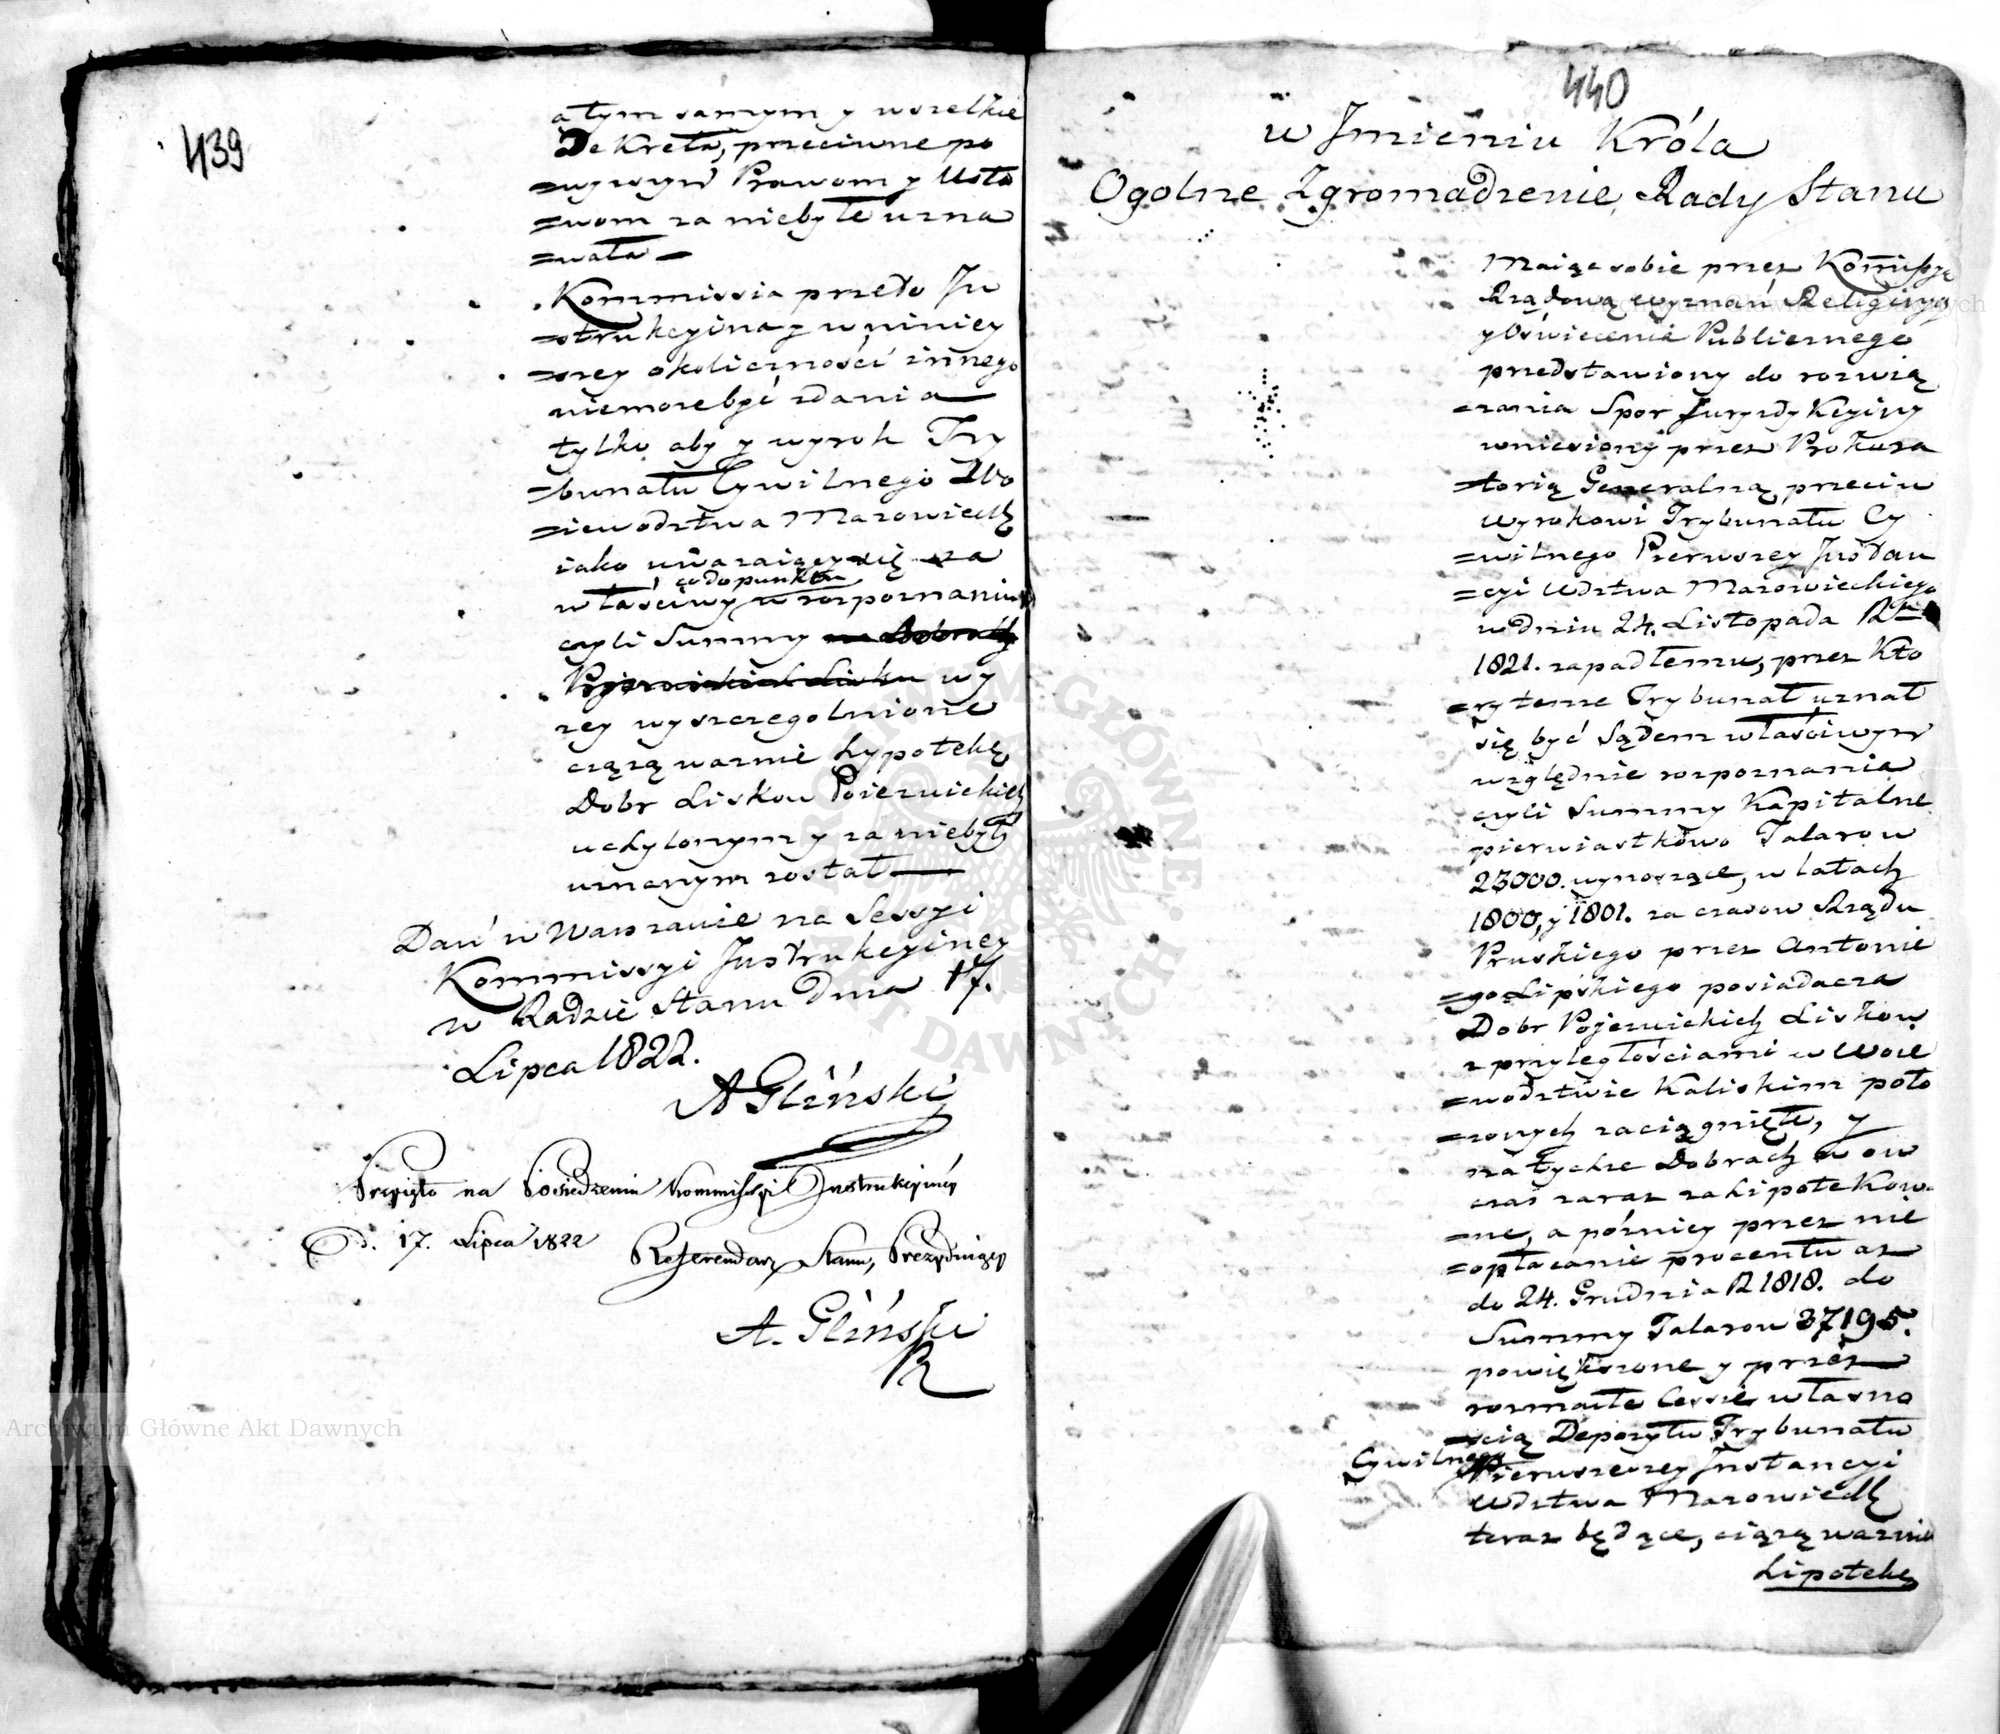 439
a tym samym y wszelkie
DeKreta, przeciwne po
=wyszym Prawom y Usta
=wom za niebyłe uzna
=wała —
Kommissia przeto In
=strukcyina y w niniey
=szey okoliczności innego
niemoże być zdania
tylko aby y wyrok Try
=bunału Cywilnego Wo
=iewództwa Mazowieck
iako uważaiący się za
właściwy co do punktu w rozpoznaniu
czyli Summy
wy
zey wyszczegolnione
ciążą ważnie hypotekę
Dobr Liskow Poiezuickich
uchylonym y za niebyły
uznanym został —
Dań w Warszawie na Sessyi
Kommissyi Instrukcyiney
w Radzie Stanu dnia 17.
Lipca 1822.
A Gliński
Przyięto na Posiedzeniu Kommissyi Instrukcyiney
d. 17. Lipca 1822
Referendarz Stanu, Prezyduiący
A. Gliński
440
w Imieniu Króla
Ogolne Zgromadzenie Rady Stanu
Maiąc sobie przez Kommissyę
Rządową Wyznań Religiinych
y Oświecenia Publicznego
przedstawiony do rozwią
=zania Spor Jurysdykcyiny
wniesiony przez Prokura
=torią Generalną przeciw
Wyrokowi Trybunału Cy
=wilnego Pierwszey Instan
=cyi Wdztwa Mazowieckiego
w dniu 24. Listopada R
1821. zapadłemu, przez Kto
=ry temże Trybunał uznał
się być Sądem właściwym
względnie rozpoznania
czyli Summy Kapitalne
pierwiastkowo Talarow
23000. wynoszące, w latach
1800, y 1801. za czasow Rządu
Pruskiego przez Antonie
=go Lipskiego posiadacza
Dobr Pojezuickich Liskow
z przyległościami w Woie
=wodztwie Kaliskim poło
=żonych zaciągnięte, y
na tychże Dobrach w ow
czas zaraz zahipotekow
=ne, a później przez nie
=opłacanie procentu aż
do 24. Grudnia R 1818. do
Summy Talarow 37195.
powiększone y przez
rozmaite Cessie własno
=ścią Depozytu Trybunału
Cywilnego Pierwszey Instancyi
Wdztwa Mazowieck
teraz będące, ciążą ważnie
Lipotekę
Archiwum Główne Akt Dawnych
Archiwum Główne Akt Dawnych
ARCHIWUM GŁÓWNE AKT DAWNYCH